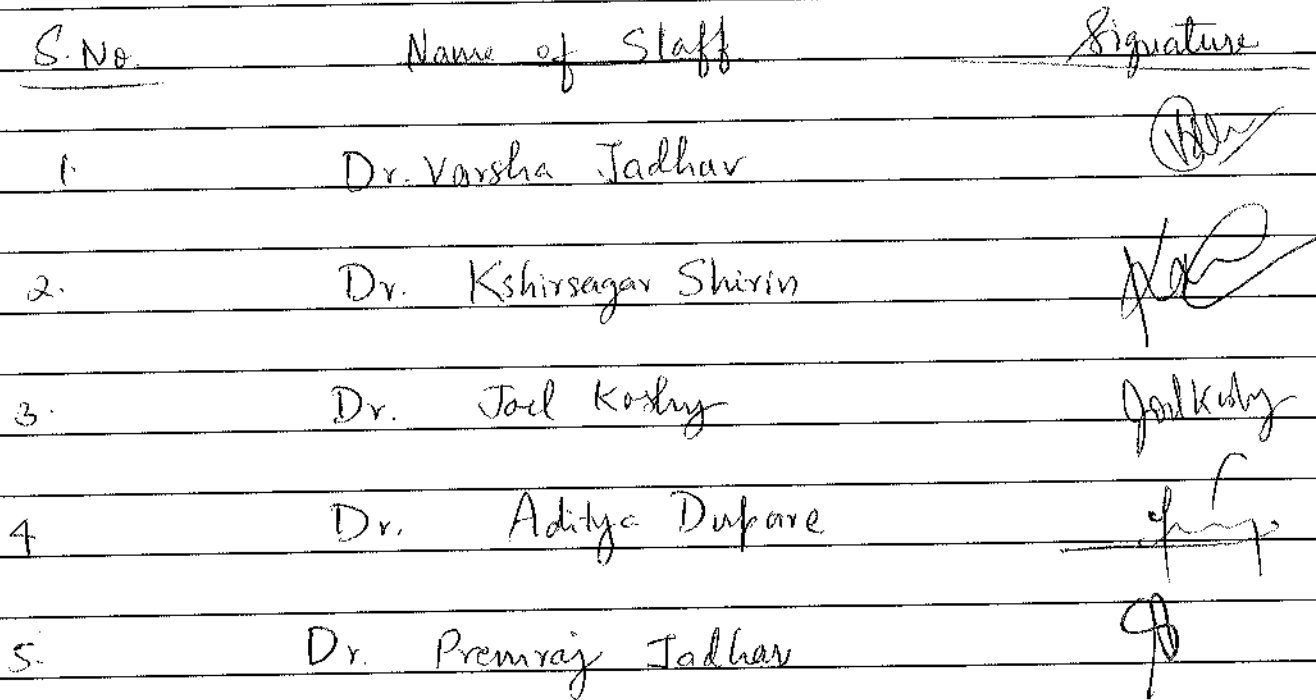 S.No. Name of Staff Signature
1. Dr. Varsha Jadhav
2. Dr. Kshirsagar Shirin
3. Dr. Joel Koshy Joel Koshy
4 Dr. Aditya Dupare
5. Dr. Premraj Jadhav